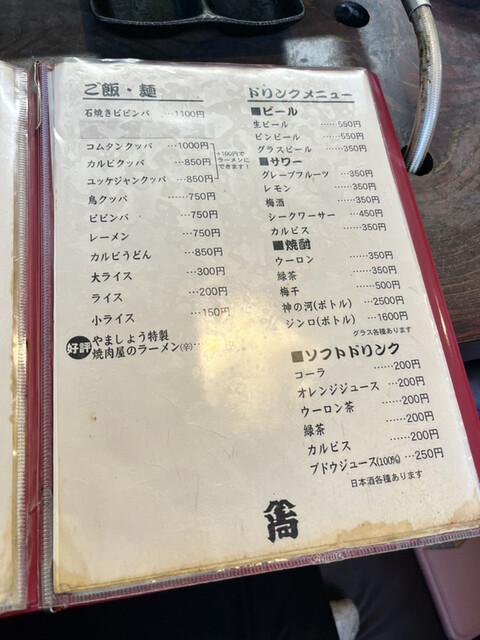 ご飯・麺
石焼きビビンバ …1100円
コムタンクッパ …1000円
カルビクッパ ……850円
ユッケジャンクッパ …850円
+100円で
ラーメンに
できます!
鳥クッパ ……750円
ビビンバ ……750円
レーメン ……750円
カルビうどん ……850円
大ライス ……300円
ライス ……200円
小ライス ……150円
好評
やましょう特製
焼肉屋のラーメン(辛)…
ドリンクメニュー
■ビール
生ビール ……550円
ビンビール ……550円
グラスビール ……350円
■サワー
グレープフルーツ …350円
レモン ……350円
梅酒 ……350円
シークワーサー …450円
カルピス ……350円
■焼酎
ウーロン ……350円
緑茶 ……350円
梅干 ……500円
神の河(ボトル) …2500円
ジンロ(ボトル) …1600円
グラス各種あります
■ソフトドリンク
コーラ ……200円
オレンジジュース …200円
ウーロン茶 ……200円
緑茶 ……200円
カルピス ……200円
ブドウジュース(100%) …250円
日本酒各種あります